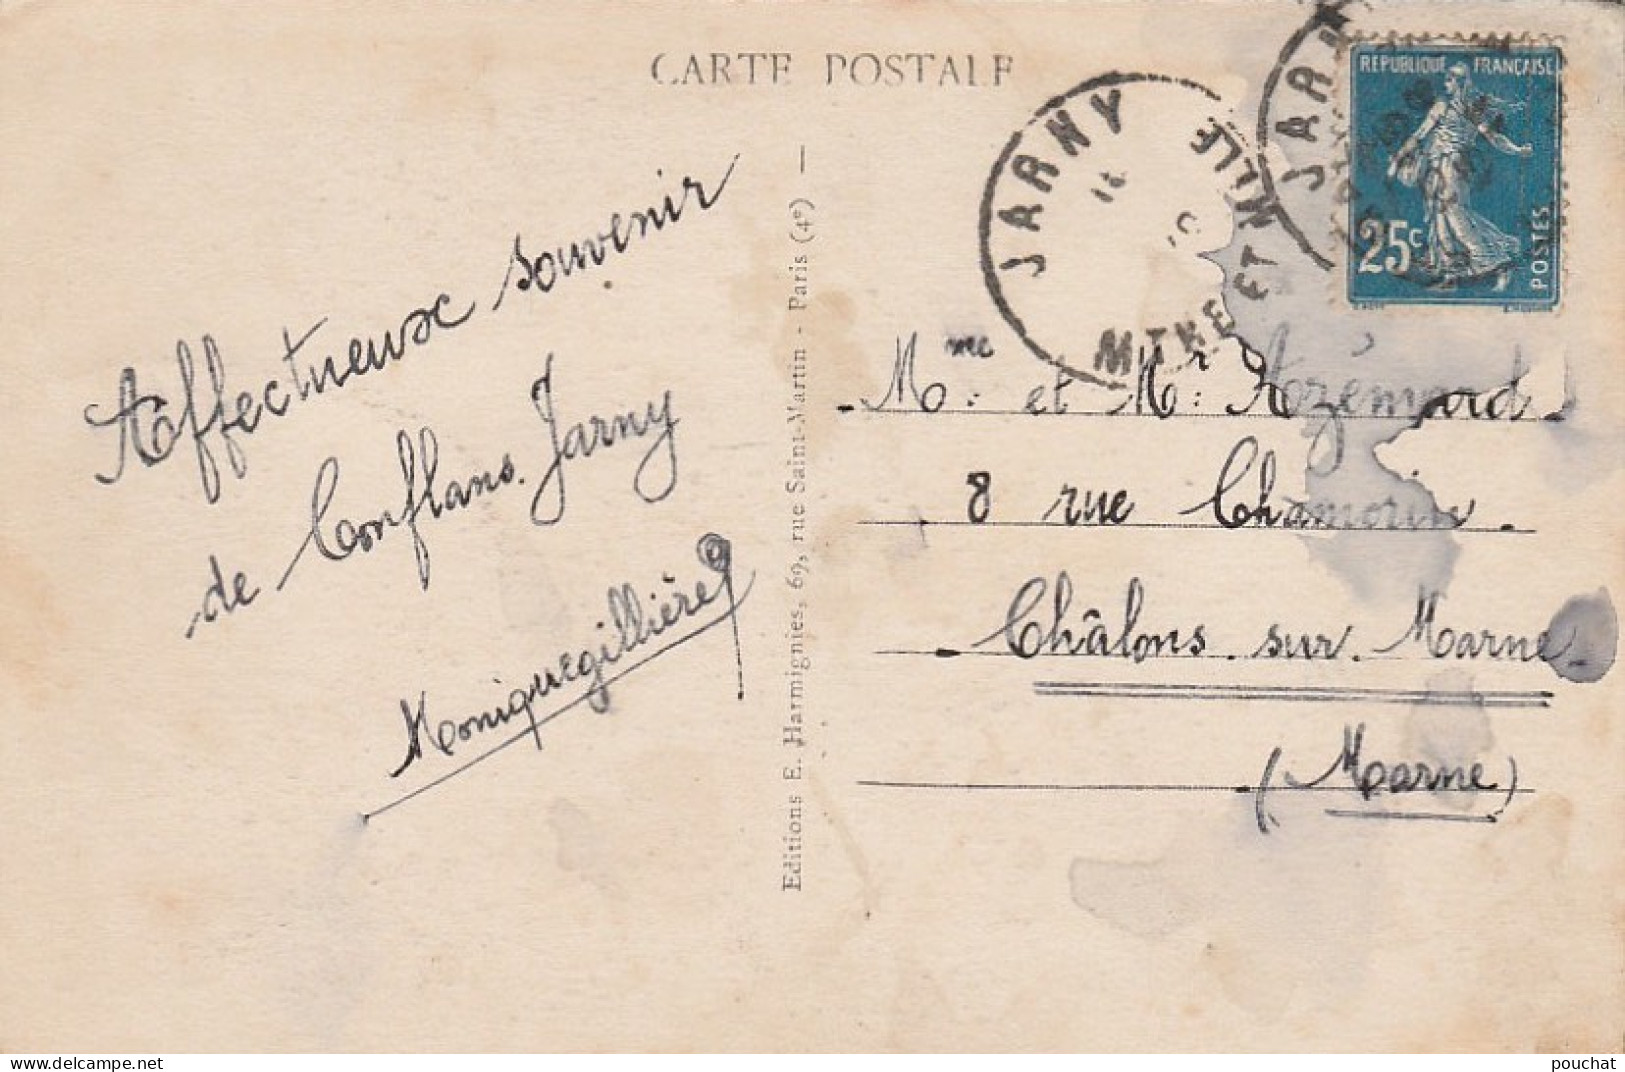 CARTE POSTALE
Affectueux souvenir
de Conflans. Jarny
Moniquegillière
Editions E. Harmignies, 69, rue Saint-Martin - Paris (4e)
JARNY
MTHE ET MLLE
JARN
REPUBLIQUE FRANÇAISE
25c
POSTES
Mme: et Mr: Azémard
8 rue Chamorin.
Châlons. sur. Marne.
(Marne)
pouchat